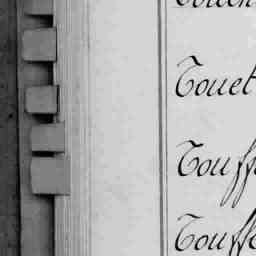 Touet
Touff
Touffe